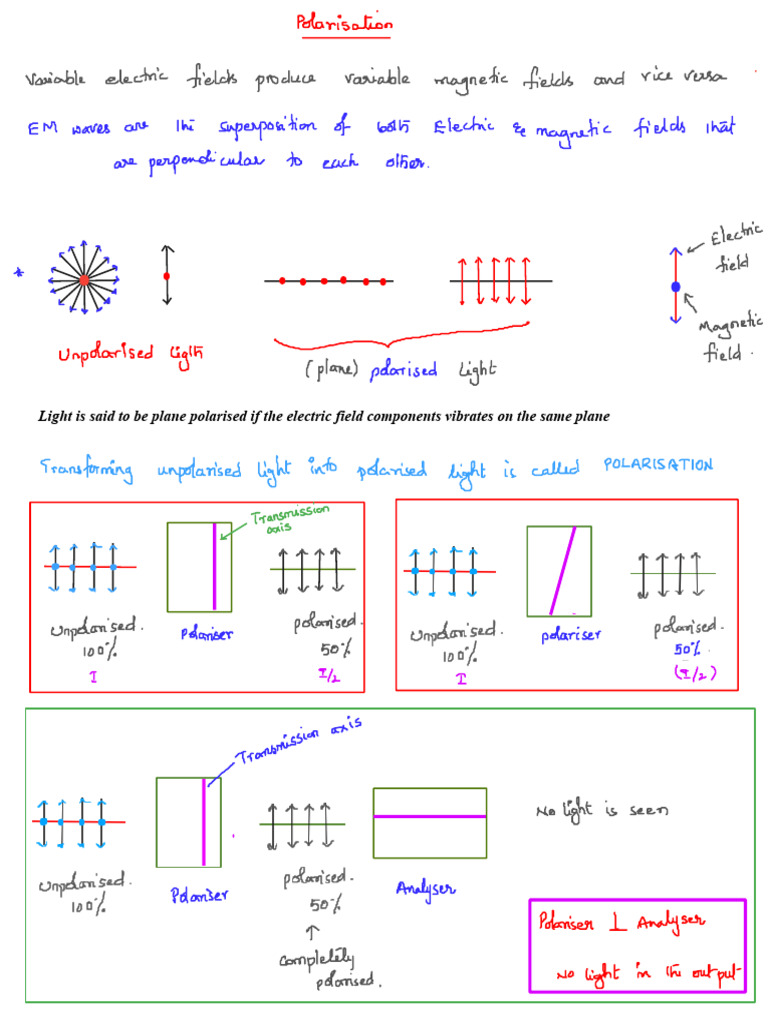 Polarisation
Variable electric fields produce variable magnetic fields and vice versa
EM waves are the superposition of both Electric & magnetic fields that
are perpendicular to each other.
*
Electric
field
Magnetic
field.
Unpolarised ligth
(plane) polarised light
Light is said to be plane polarised if the electric field components vibrates on the same plane
Transforming unpolarised light into polarised light is called POLARISATION
Transmission
axis
Unpolarised.
100%
I
Polariser
polarised.
50%
I/2
Unpolarised.
100%
I
polariser
polarised.
50%.
(I/2)
Transmission axis
Unpolarised.
100%
Polariser
polarised.
50%
completely
polarised.
Analyser
No light is seen
Polariser ⊥ Analyser
No light in the output